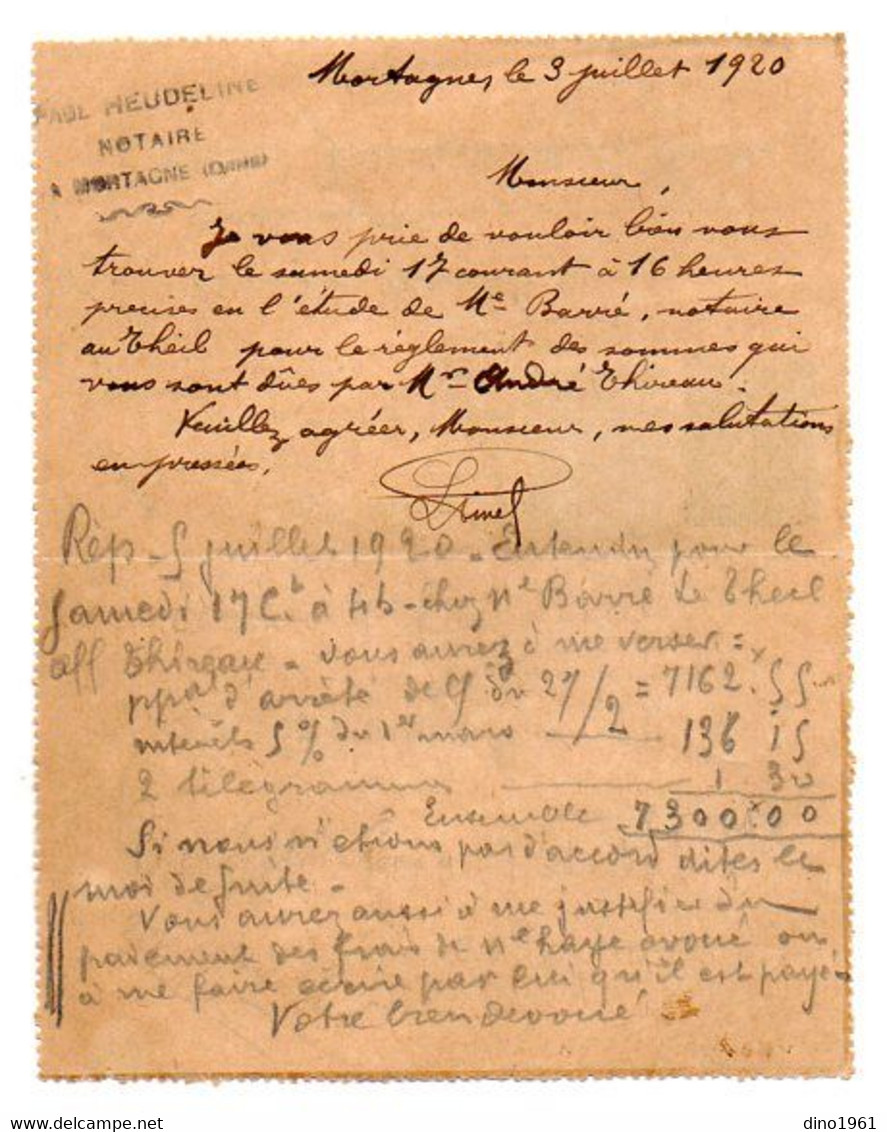 Mortagne, le 3 juillet 1920
PAUL HEUDELINE
NOTAIRE
A MORTAGNE (ORNE)
Monsieur,
Je vous prie de vouloir bien vous
trouver le samedi 17 courant à 16 heures
precises en l'étude de Me Barré, notaire
au Theil pour le réglement des sommes qui
vous sont dûes par Mr André Thireau.
Veuillez agréer, Monsieur, mes salutations
empressées.
Rép - 5 juillet 1920 - Entendu pour le
Samedi 17 Ct à 4h - chez Me Barré Le Theil
aff Thireau - vous aurez à me verser =
ppal d'arrêté de du 27/2 = 7162.55
intérêts 5% du 1er mars — 136 15
2 télégrammes — 1 30
Ensemble 7300.00
Si nous n'étions pas d'accord dites le
moi de suite -
Vous aurez aussi à me justifier du
paiement des frais de Me haye avoué ou
à me faire écrire par lui qu'il est payé -
Votre bien dévoué
dino1961